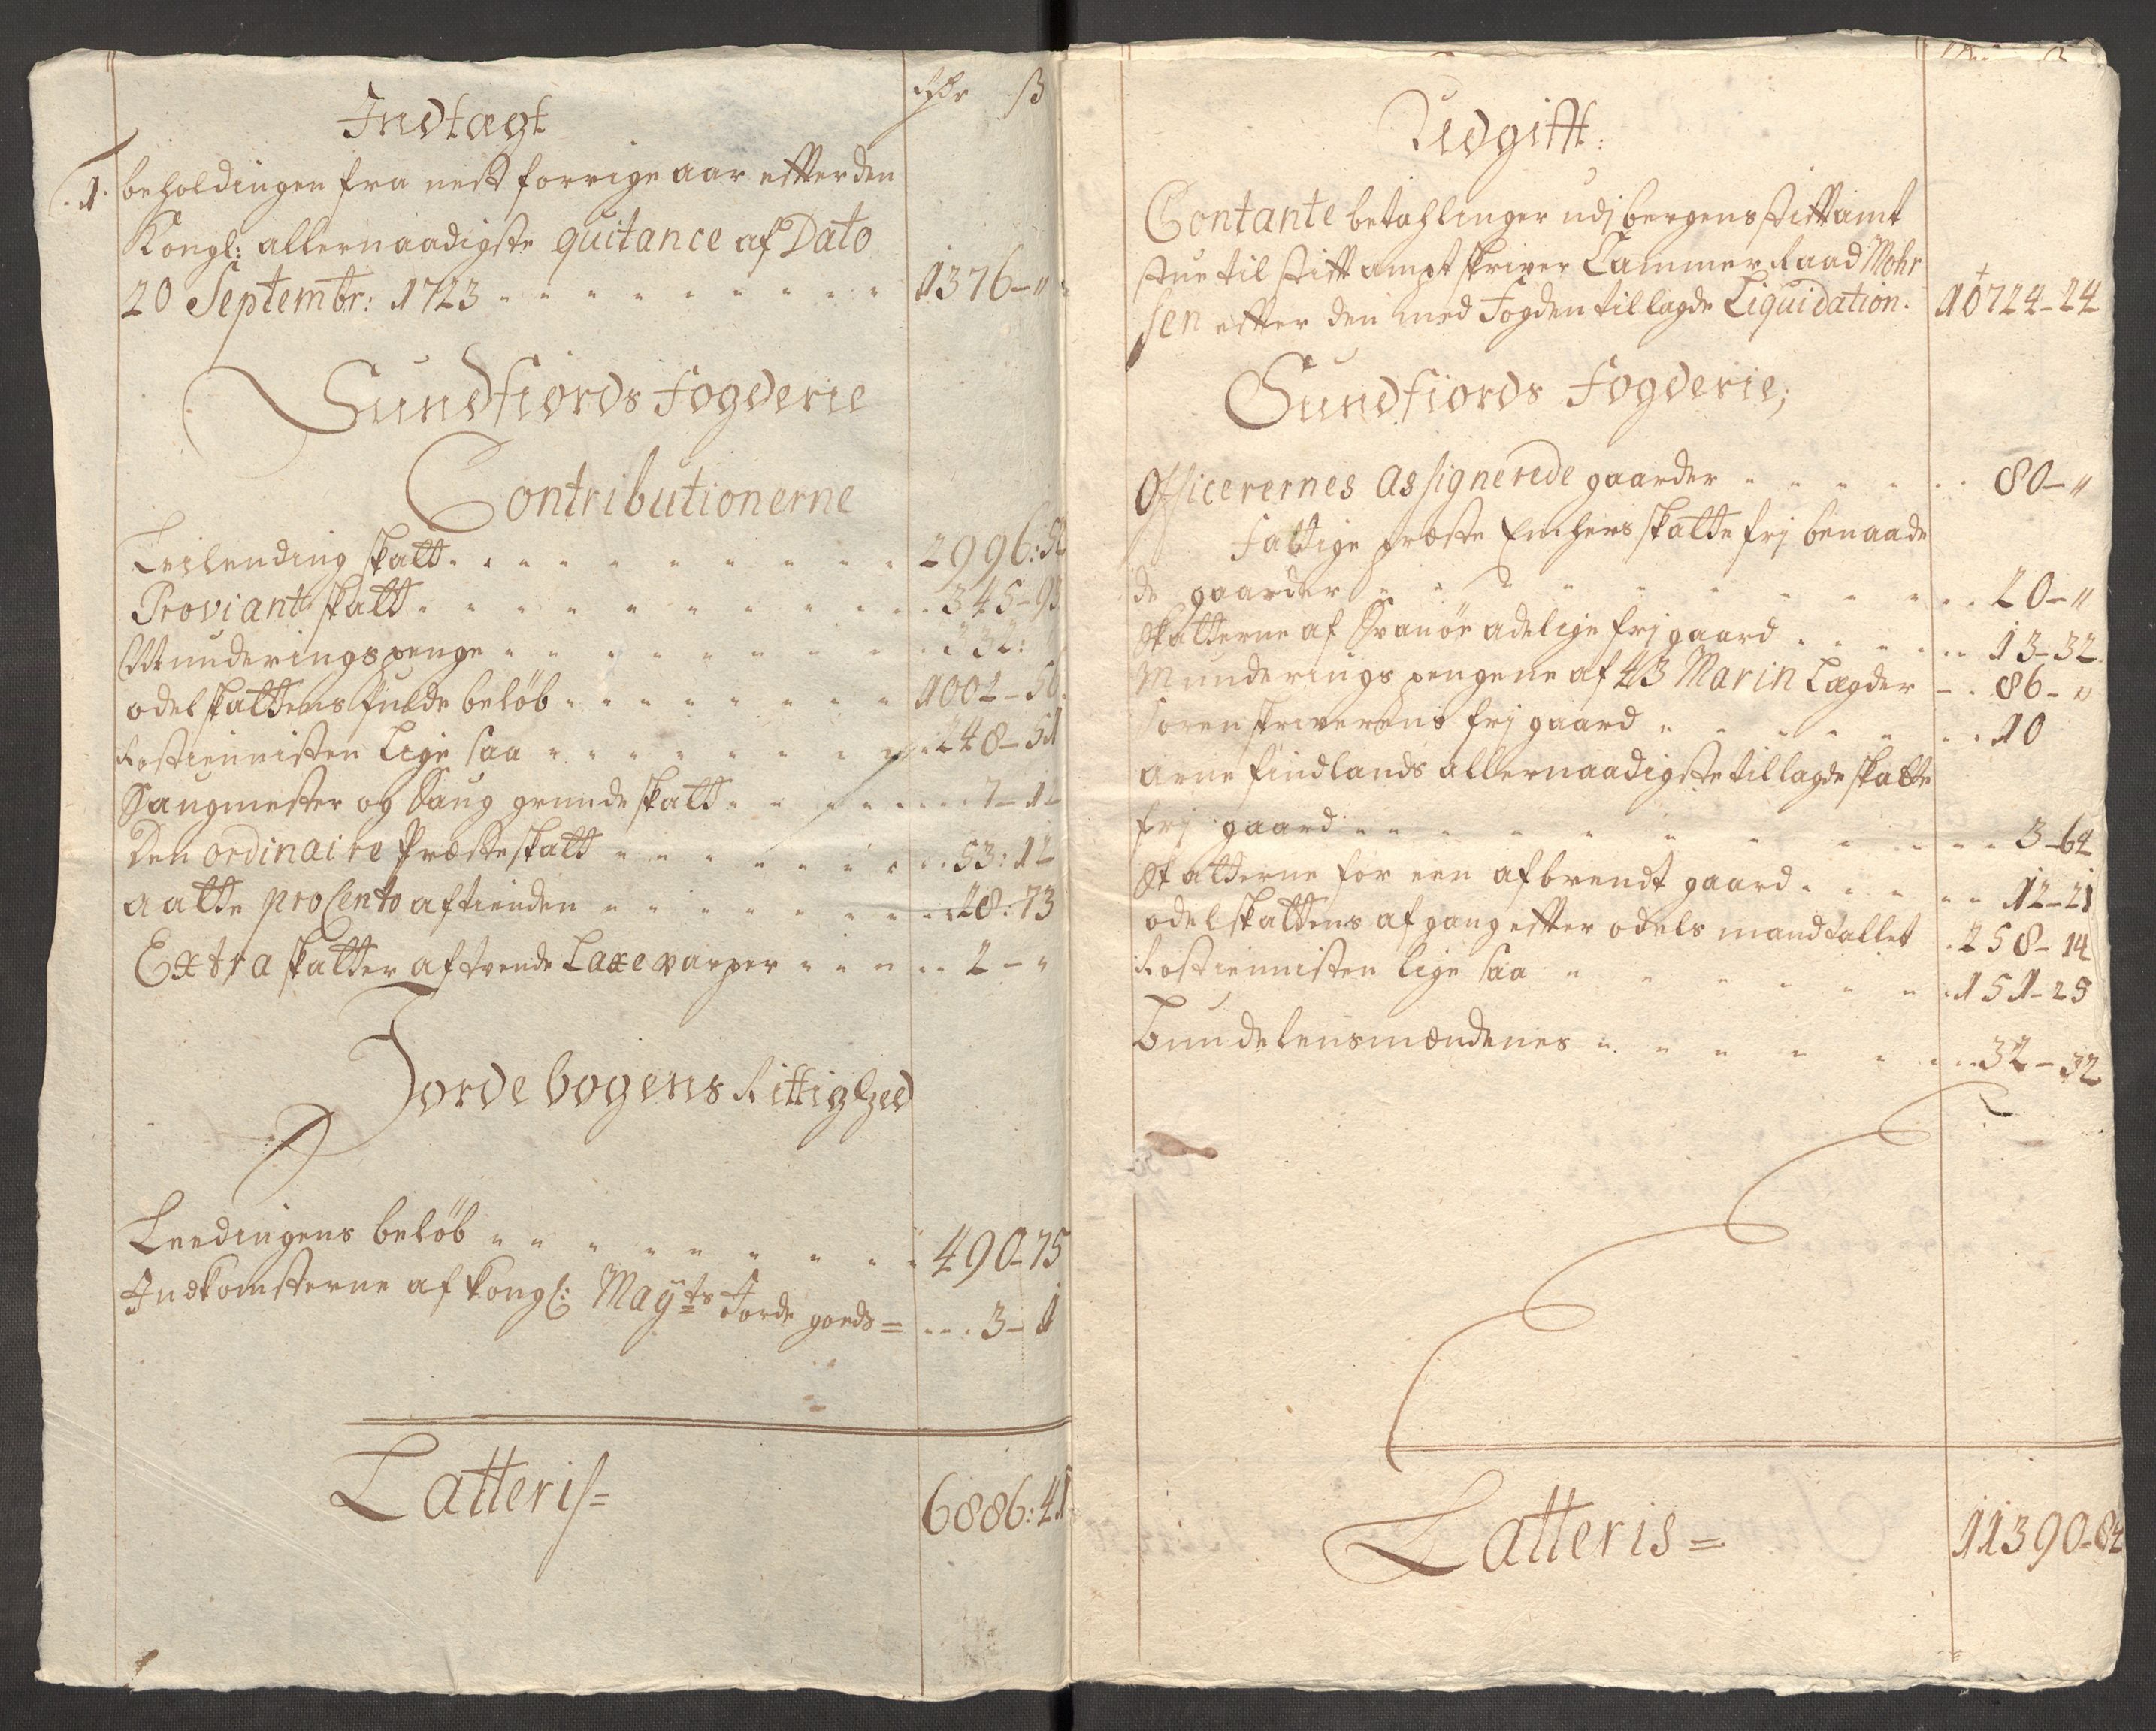 Rdr ß
Indtægt
1. beholdingen fra nest forrige aar effter den
Kongl: allernaadigste quitance af Dato
20 Septembr: 1723 1376 - "
Sundfiords Fogderie
Contributionerne
Leilending skatt 2996:52
Proviant skatt 345-93
Munderings penge 332:
odel skattens fulde beløb 1002-56
Rostienisten lige saa 248-51
Saugmester og Saug grunde skatt 7-12
Den ordinaire Præste skatt 53:12
aatte pro Cento af tienden 28:73
Extra skatter af tvende Laxe varper 2 - "
Jordebogens Rettighed
Leedingens beløb 490-75
Indkomsterne af kongl: Mayts Jorde goeds = 3-1
Latteris = 6886:41
Udgifft:
Contante betahlinger udj bergens stifft amt
stue til stifft ampt skriver Cammer Raad Mohr
sen effter den med Fogden tillagde Liquidation. 10724-24
Sundfiords Fogderie;
Officerernes assignerede gaarder 80 - "
Fattige Præste Enchers skatte frj benaade
de gaarder 20 - "
Skatterne af Svanöe adelige frj gaard 13-32
Munderings pengene af 43 Marin Lægder 86 - "
Sorenskriverens frj gaard 10
arne findlands allernaadigste tillagde skatte
frj gaard 3-64
Skatterne for een afbrendt gaard 12-21
odelskattens afgang effter odels mandtallet 258-14
Rostienisten lige saa 151-25
Bundelensmændenes 32-32
Latteris = 11390-84